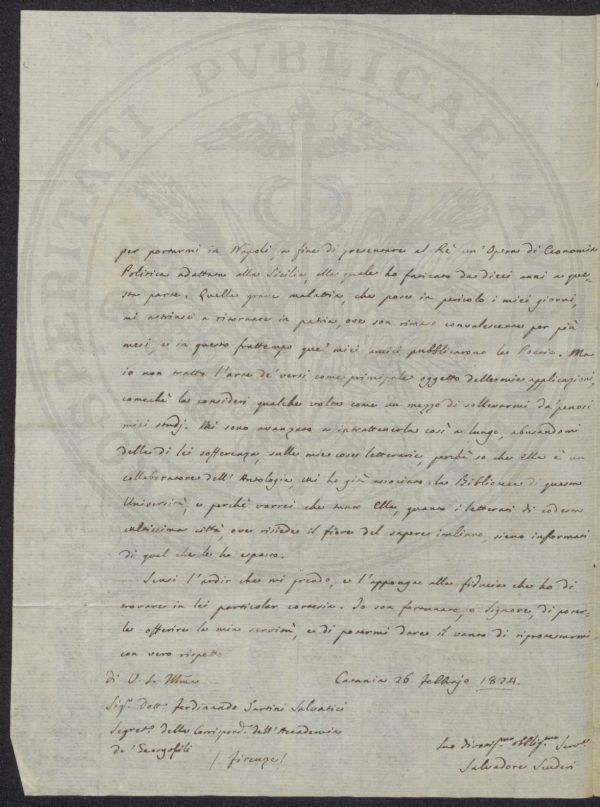 PROSPERITATI PUBLICAE AU
per portarmi in Napoli, a fine di presentare al Re un' Opera di Economia
Politica adattata alla Sicilia, alla quale ho faticato da dieci anni a que-
sta parte. Quella grave malattia, che pose in pericolo i miei giorni,
mi astrinse a ritornare in patria, ove son rimaso convalescente per più
mesi, e in questo frattempo que' miei amici pubblicarono le Poesie. Ma
io non tratto l'arte de' versi come principale oggetto delle mie applicazioni,
comechè la consideri qualche volta come un mezzo di sollevarmi da' penosi
miei studj. Mi sono avanzato a intrattenerla così a lungo, abusandomi
della di lei sofferenza, sulle mie cose letterarie, perchè so che Ella è un
collaboratore dell' Antologia, cui ho già associato la Biblioteca di questa
Università, e perchè vorrei che tanto Ella, quanto i letterati di codesta
coltissima città, ove risiede il fiore del sapere italiano, sieno informati
di quel che le ho esposto.
Scusi l'ardir che mi prendo, e l'appongа alla fiducia che ho di
trovare in lei particolar cortesia. Io son fortunato, o Signore, di poter-
le offerire la mia servitù, e di potermi dare il vanto di riprotestarmi
con vero rispetto
di V. S. Illma
Catania 26 Febbrajo 1824.
Sigr. Dottr. Ferdinando Tartini Salvatici
Segreto. della Corrispond. dell' Accademia
de' Georgofili
( Firenze )
Suo Divotis.mo obblig.mo Serv.
Salvadore Scuderi